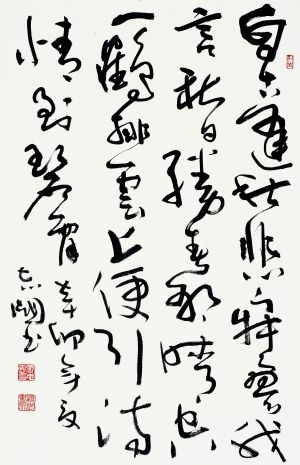 自古逢秋悲寂寥我
言秋日勝春朝晴空
一鶴排雲上便引詩
情到碧霄 辛卯年夏
書